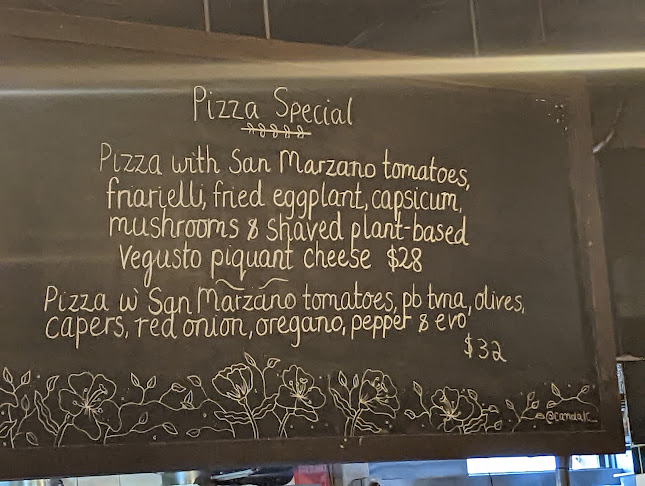 Pizza Special
Pizza with San Marzano tomatoes,
friarielli, fried eggplant, capsicum,
mushrooms & shaved plant-based
Vegusto piquant cheese $28
Pizza w' San Marzano tomatoes, pb tuna, olives,
capers, red onion, oregano, pepper & evo
$32